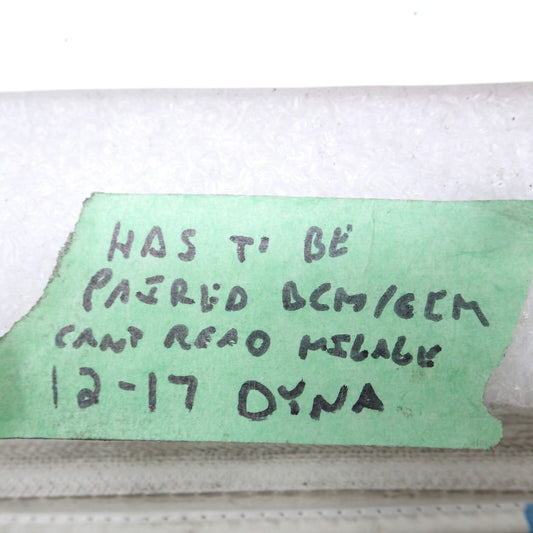 HAS TO BE
PAIRED BCM/ECM
CANT READ MILAGE
12-17 DYNA